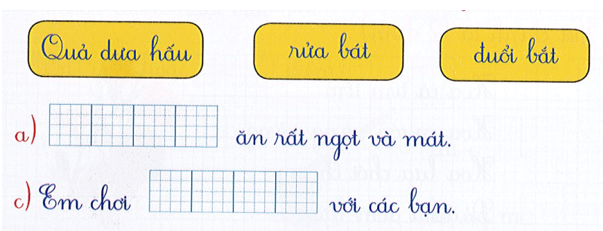 Quả dưa hấu rửa bát đuổi bắt
a) ăn rất ngọt và mát.
c) Em chơi với các bạn.